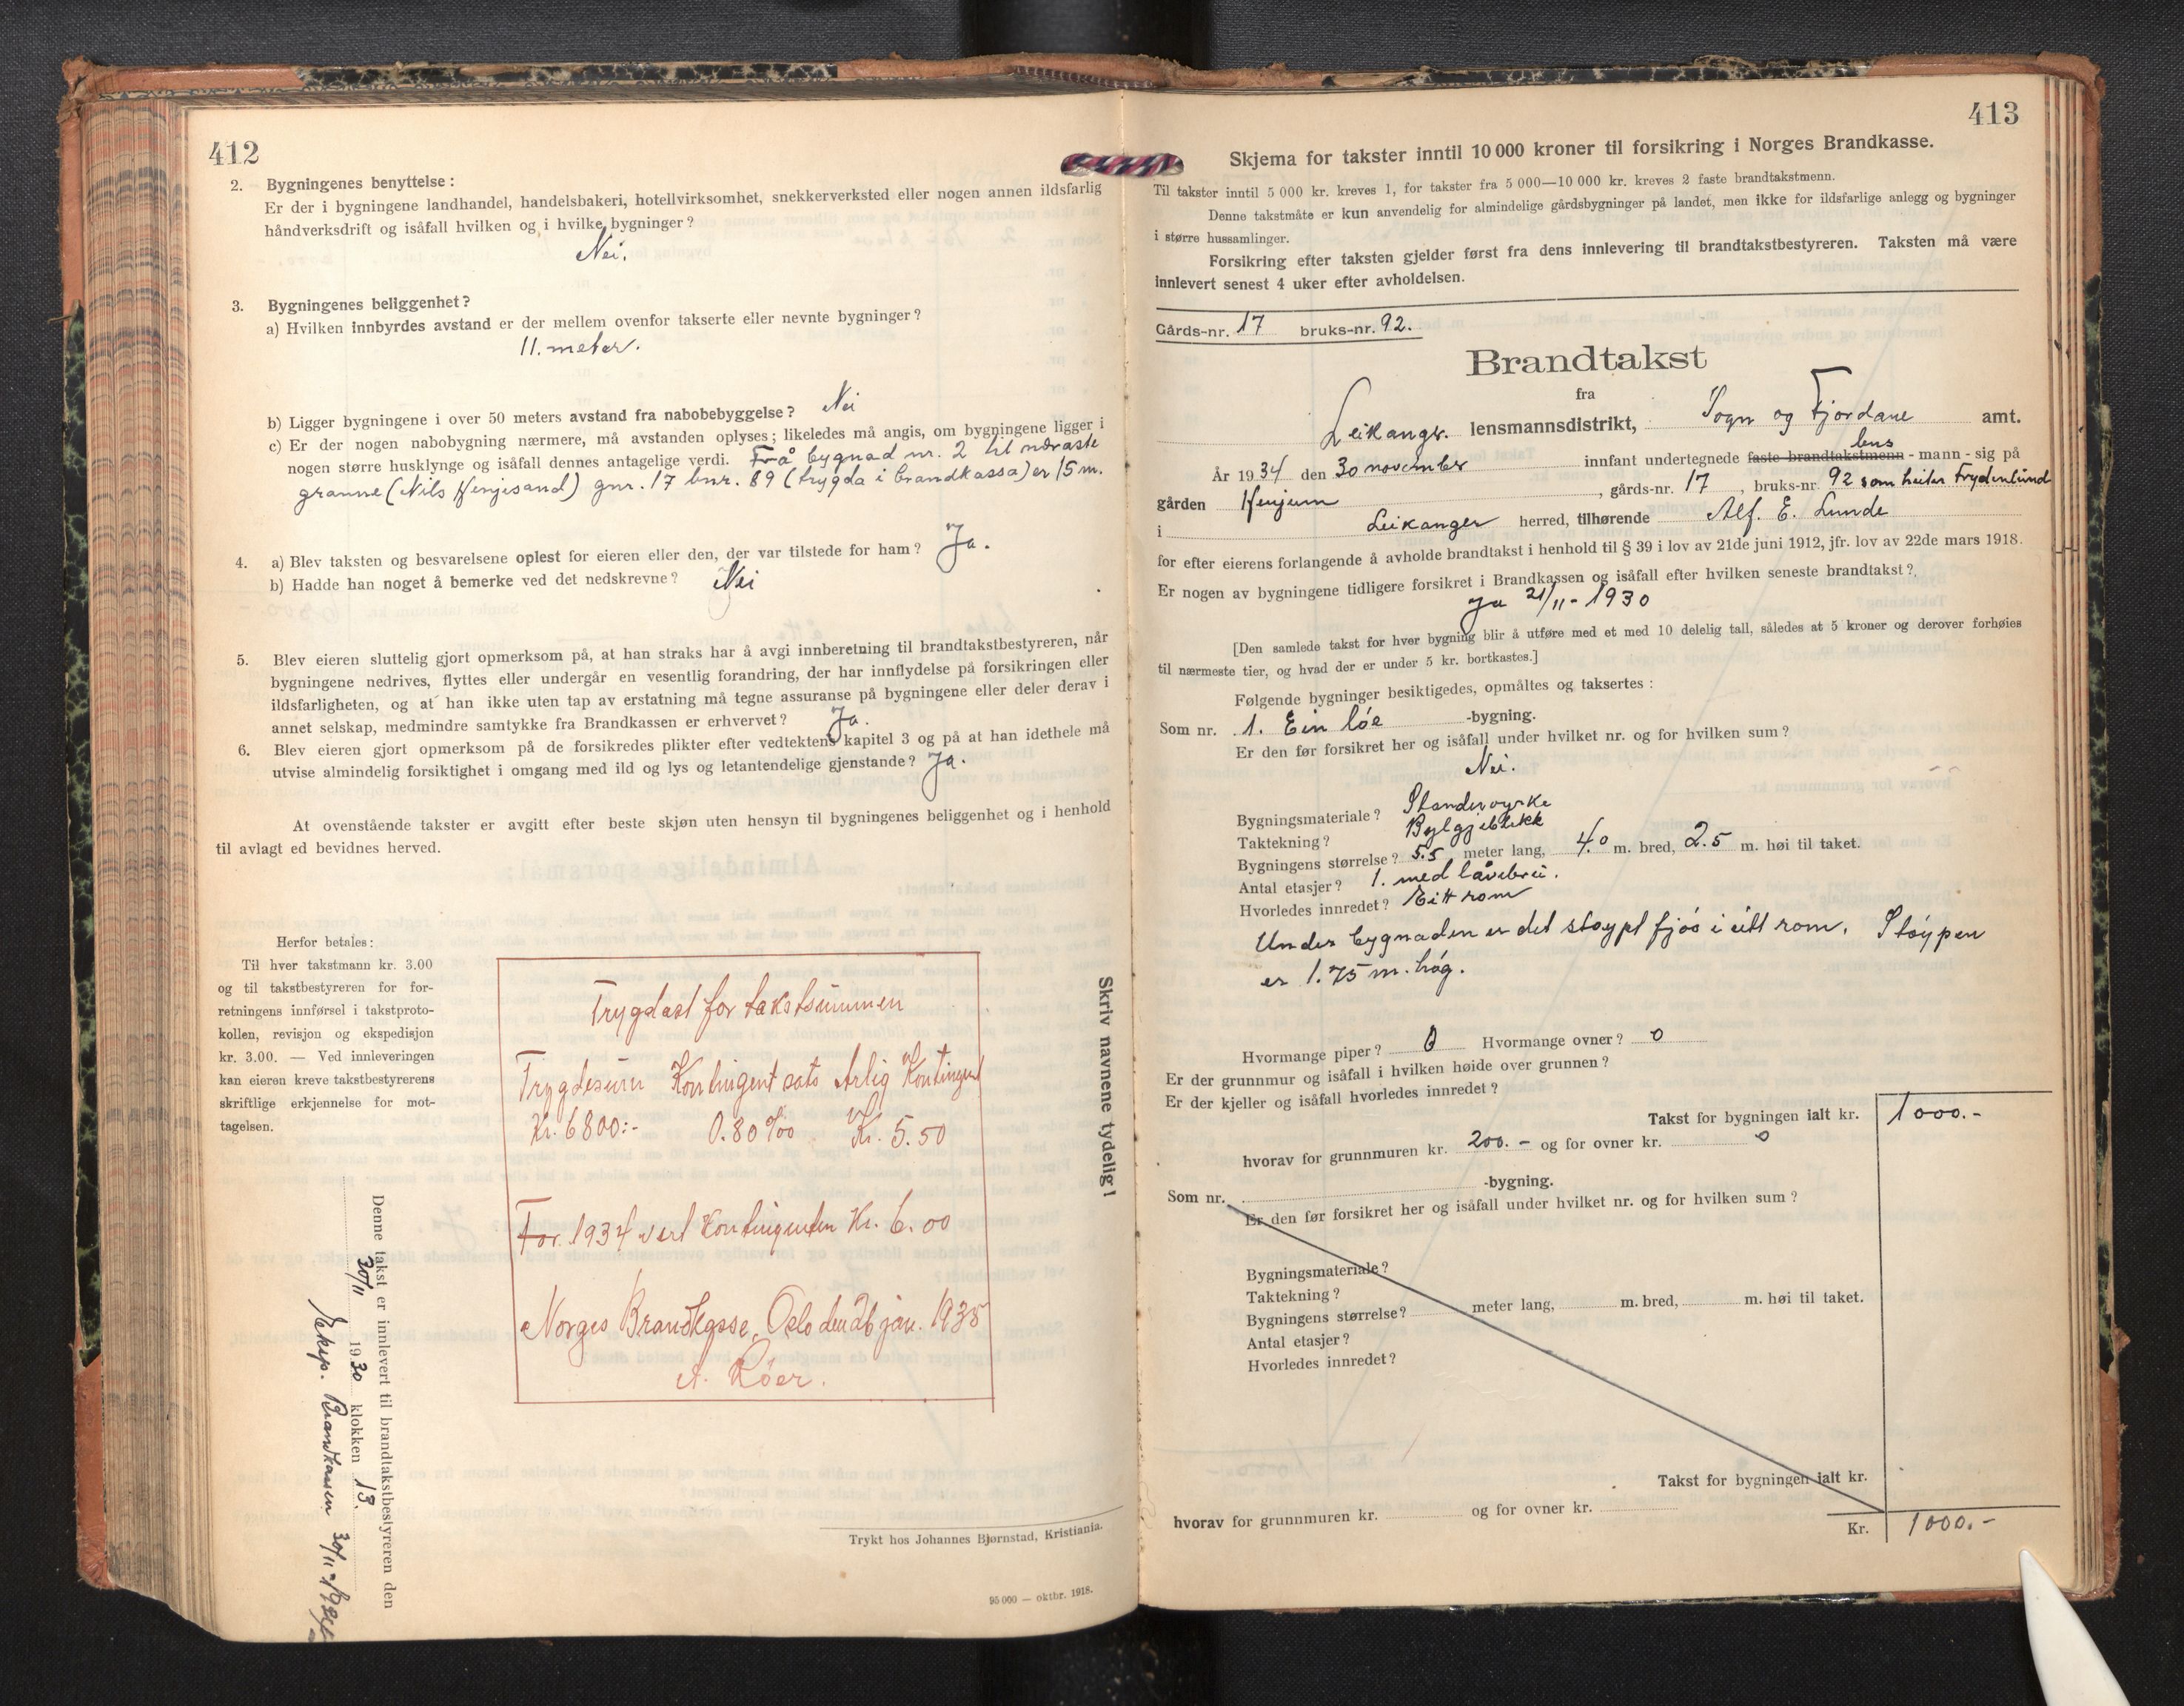 412
2. Bygningenes benyttelse:
Er der i bygningene landhandel, handelsbakeri, hotellvirksomhet, snekkerverksted eller nogen annen ildsfarlig
håndverksdrift og isåfall hvilken og i hvilke bygninger?
Nei.
3. Bygningenes beliggenhet?
a) Hvilken innbyrdes avstand er der mellem ovenfor takserte eller nevnte bygninger?
11. meter.
b) Ligger bygningene i over 50 meters avstand fra nabobebyggelse? Nei
c) Er der nogen nabobygning nærmere, må avstanden oplyses; likeledes må angis, om bygningene ligger i
nogen større husklynge og isåfall dennes antagelige verdi. Frå bygnad nr. 2 til næraste
granne (Nils Henjesand) gnr. 17 bnr. 89 (trygda i brandkassa) er 15 m.
4. a) Blev taksten og besvarelsene oplest for eieren eller den, der var tilstede for ham? Ja.
b) Hadde han noget å bemerke ved det nedskrevne? Nei
5. Blev eieren sluttelig gjort opmerksom på, at han straks har å avgi innberetning til brandtakstbestyreren, når
bygningene nedrives, flyttes eller undergår en vesentlig forandring, der har innflydelse på forsikringen eller
ildsfarligheten, og at han ikke uten tap av erstatning må tegne assuranse på bygningene eller deler derav i
annet selskap, medmindre samtykke fra Brandkassen er erhvervet? Ja.
6. Blev eieren gjort opmerksom på de forsikredes plikter efter vedtektens kapitel 3 og på at han idethele må
utvise almindelig forsiktighet i omgang med ild og lys og letantendelige gjenstande? Ja.
At ovenstående takster er avgitt efter beste skjøn uten hensyn til bygningenes beliggenhet og i henhold
til avlagt ed bevidnes herved.
Herfor betales:
Til hver takstmann kr. 3.00
og til takstbestyreren for for-
retningens innførsel i takstproto-
kollen, revisjon og ekspedisjon
kr. 3.00. — Ved innleveringen
kan eieren kreve takstbestyrerens
skriftlige erkjennelse for mot-
tagelsen.
Trygdast for takstsummen
Trygdesum Kontingent sats Årlig Kontingent
Kr. 6800:- 0.80 ‰ Kr. 5.50
For 1934 vert kontingenten Kr. 6.00
Norges Brandkasse, Oslo den 26 jan. 1935
A. Löer.
Denne takst er innlevert til brandtakstbestyreren den
30/11 1930 klokken 13.
Eksp. Brandkassen 30/11-1934
Skriv navnene tydelig!
Trykt hos Johannes Bjørnstad, Kristiania.
95 000 — oktbr. 1918.
413
Skjema for takster inntil 10 000 kroner til forsikring i Norges Brandkasse.
Til takster inntil 5 000 kr. kreves 1, for takster fra 5 000—10 000 kr. kreves 2 faste brandtakstmenn.
Denne takstmåte er kun anvendelig for almindelige gårdsbygninger på landet, men ikke for ildsfarlige anlegg og bygninger
i større hussamlinger.
Forsikring efter taksten gjelder først fra dens innlevering til brandtakstbestyreren. Taksten må være
innlevert senest 4 uker efter avholdelsen.
Gårds-nr. 17 bruks-nr. 92.
Brandtakst
fra
Leikanger. lensmannsdistrikt, Sogn og Fjordane amt.
År 1934 den 30 november innfant undertegnede faste brandtakstmenn lens - mann - sig på
gården Henjum, gårds-nr. 17, bruks-nr. 92 som heiter Frydenlund
i Leikanger herred, tilhørende Alf. E. Lunde
for efter eierens forlangende å avholde brandtakst i henhold til § 39 i lov av 21de juni 1912, jfr. lov av 22de mars 1918.
Er nogen av bygningene tidligere forsikret i Brandkassen og isåfall efter hvilken seneste brandtakst?
Ja 21/11-1930
[Den samlede takst for hver bygning blir å utføre med et med 10 delelig tall, således at 5 kroner og derover forhøies
til nærmeste tier, og hvad der er under 5 kr. bortkastes.]
Følgende bygninger besiktigedes, opmåltes og taksertes:
Som nr. 1. Ein löe -bygning.
Er den før forsikret her og isåfall under hvilket nr. og for hvilken sum?
Nei.
Bygningsmateriale? Standervyrke
Taktekning? Bylgjeblikk
Bygningens størrelse? 5.5 meter lang, 4.0 m. bred, 2.5 m. høi til taket.
Antal etasjer? 1. med låvebrui.
Hvorledes innredet? Eitt rom
Under bygnaden er det stöypt fjös i eitt rom. Stöypen
er 1.75 m. høg.
Hvormange piper? 0 Hvormange ovner? 0
Er der grunnmur og isåfall i hvilken høide over grunnen?
Er der kjeller og isåfall hvorledes innredet?
Takst for bygningen ialt kr. 1000.-
hvorav for grunnmuren kr. 200.- og for ovner kr. 0
Som nr. -bygning.
Er den før forsikret her og isåfall under hvilket nr. og for hvilken sum?
Bygningsmateriale?
Taktekning?
Bygningens størrelse? meter lang, m. bred, m. høi til taket.
Antal etasjer?
Hvorledes innredet?
Takst for bygningen ialt kr.
hvorav for grunnmuren kr. og for ovner kr.
Kr. 1000.-